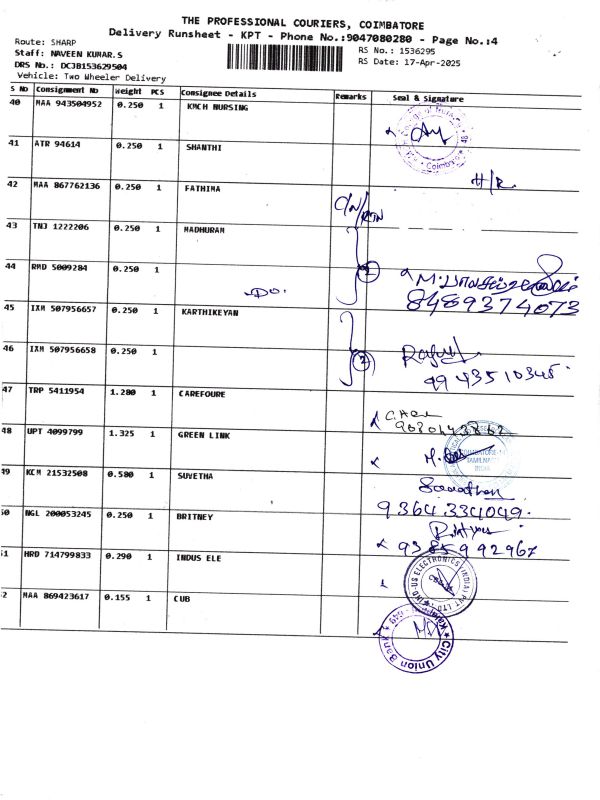 THE PROFESSIONAL COURIERS, COIMBATORE
Delivery Runsheet - KPT - Phone No.:9047080280 - Page No.:4
Route: SHARP
Staff: NAVEEN KUMAR.S
DRS No.: DCJB153629504
Vehicle: Two Wheeler Delivery
RS No.: 1536295
RS Date: 17-Apr-2025
S No Consignment No Weight PCS Consignee Details Remarks Seal & Signature
40 MAA 943504952 0.250 1 KMCH NURSING
41 ATR 94614 0.250 1 SHANTHI
H/R.
42 MAA 867762136 0.250 1 FATHIMA
43 TNJ 1222206 0.250 1 MADHURAM
44 RMD 5009284 0.250 1
Do.
2
8489374073
45 IXM 507956657 0.250 1 KARTHIKEYAN
46 IXM 507956658 0.250 1
2
9943510345
47 TRP 5411954 1.280 1 CAREFOURE
48 UPT 4099799 1.325 1 GREEN LINK
49 KCM 21532508 0.580 1 SUVETHA
9364334049.
50 NGL 200053245 0.250 1 BRITNEY
9385992967
51 HRD 714799833 0.290 1 INDUS ELE
IND-US ELECTRONICS (INDIA) PVT LTD.
52 MAA 869423617 0.155 1 CUB
City Union Bank